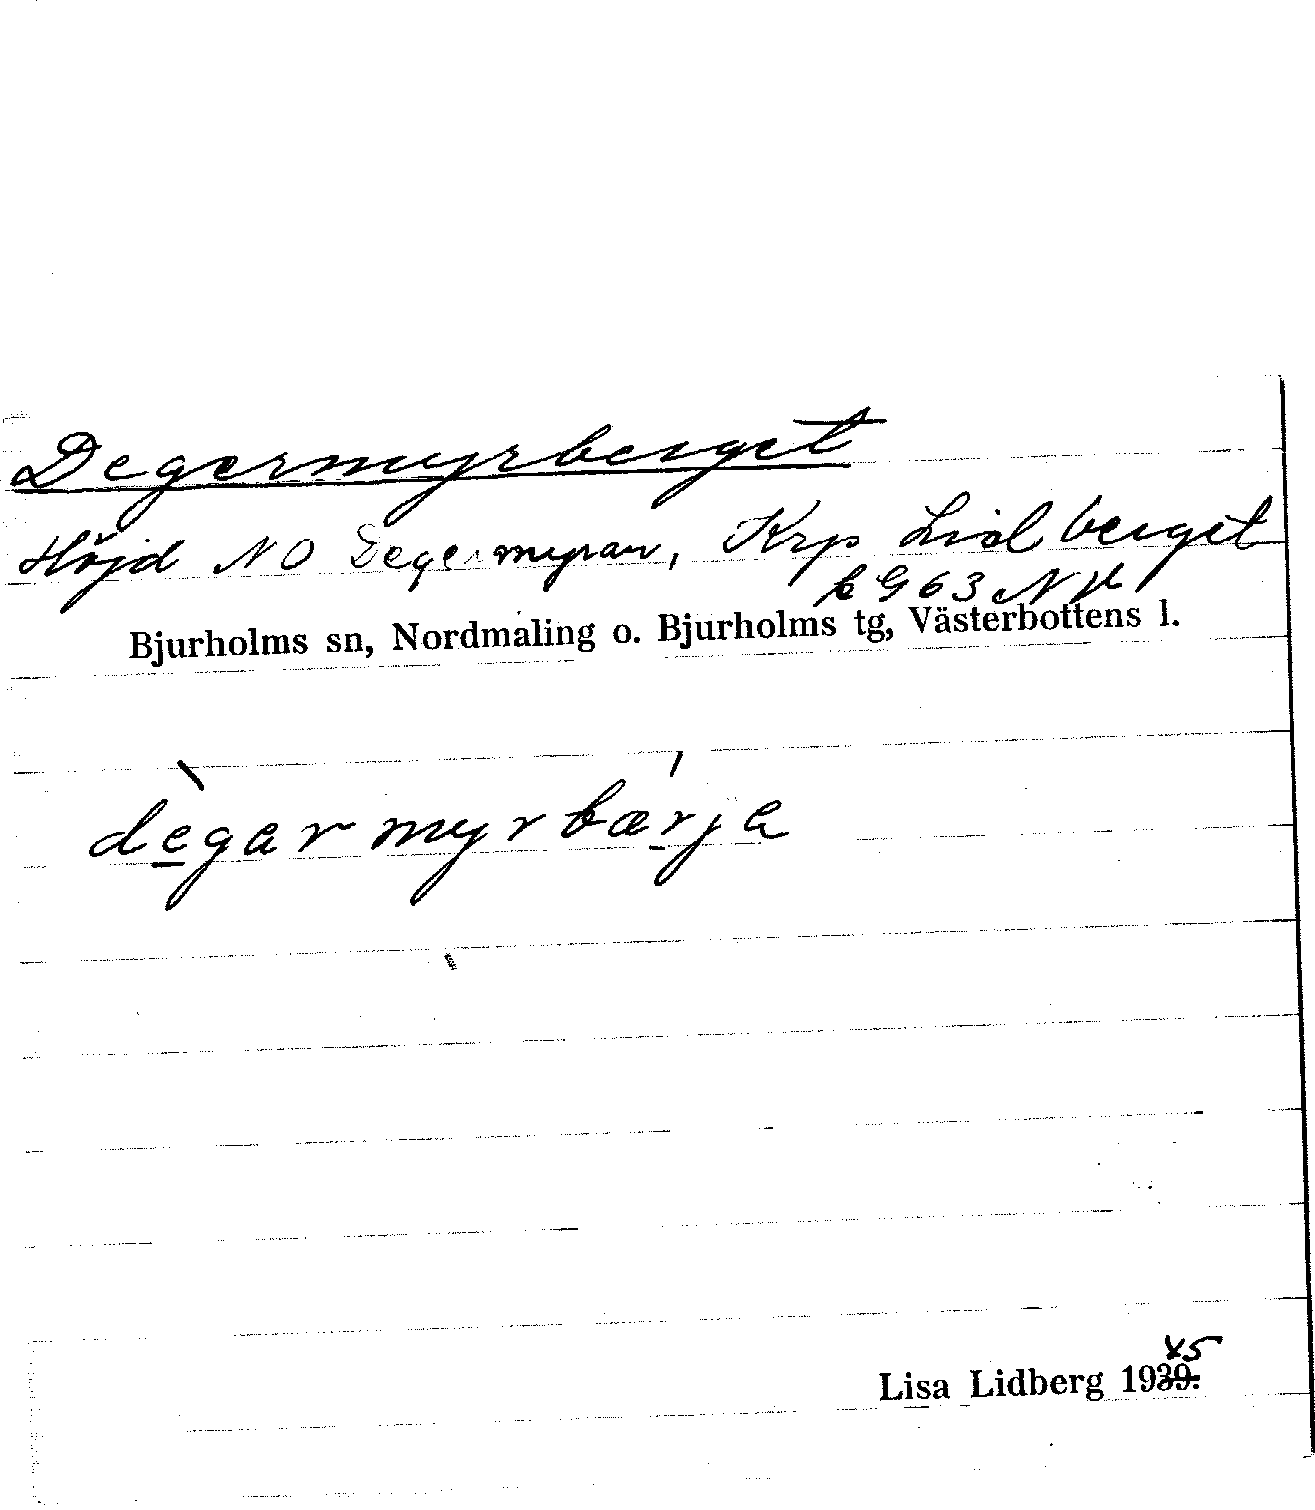 Degermyrberget
Höjd NO Degermyran, Krp Lidberget
G 63 NV
Bjurholms sn, Nordmaling o. Bjurholms tg, Västerbottens l.
dègarmyrbærja
45
Lisa Lidberg 1939.